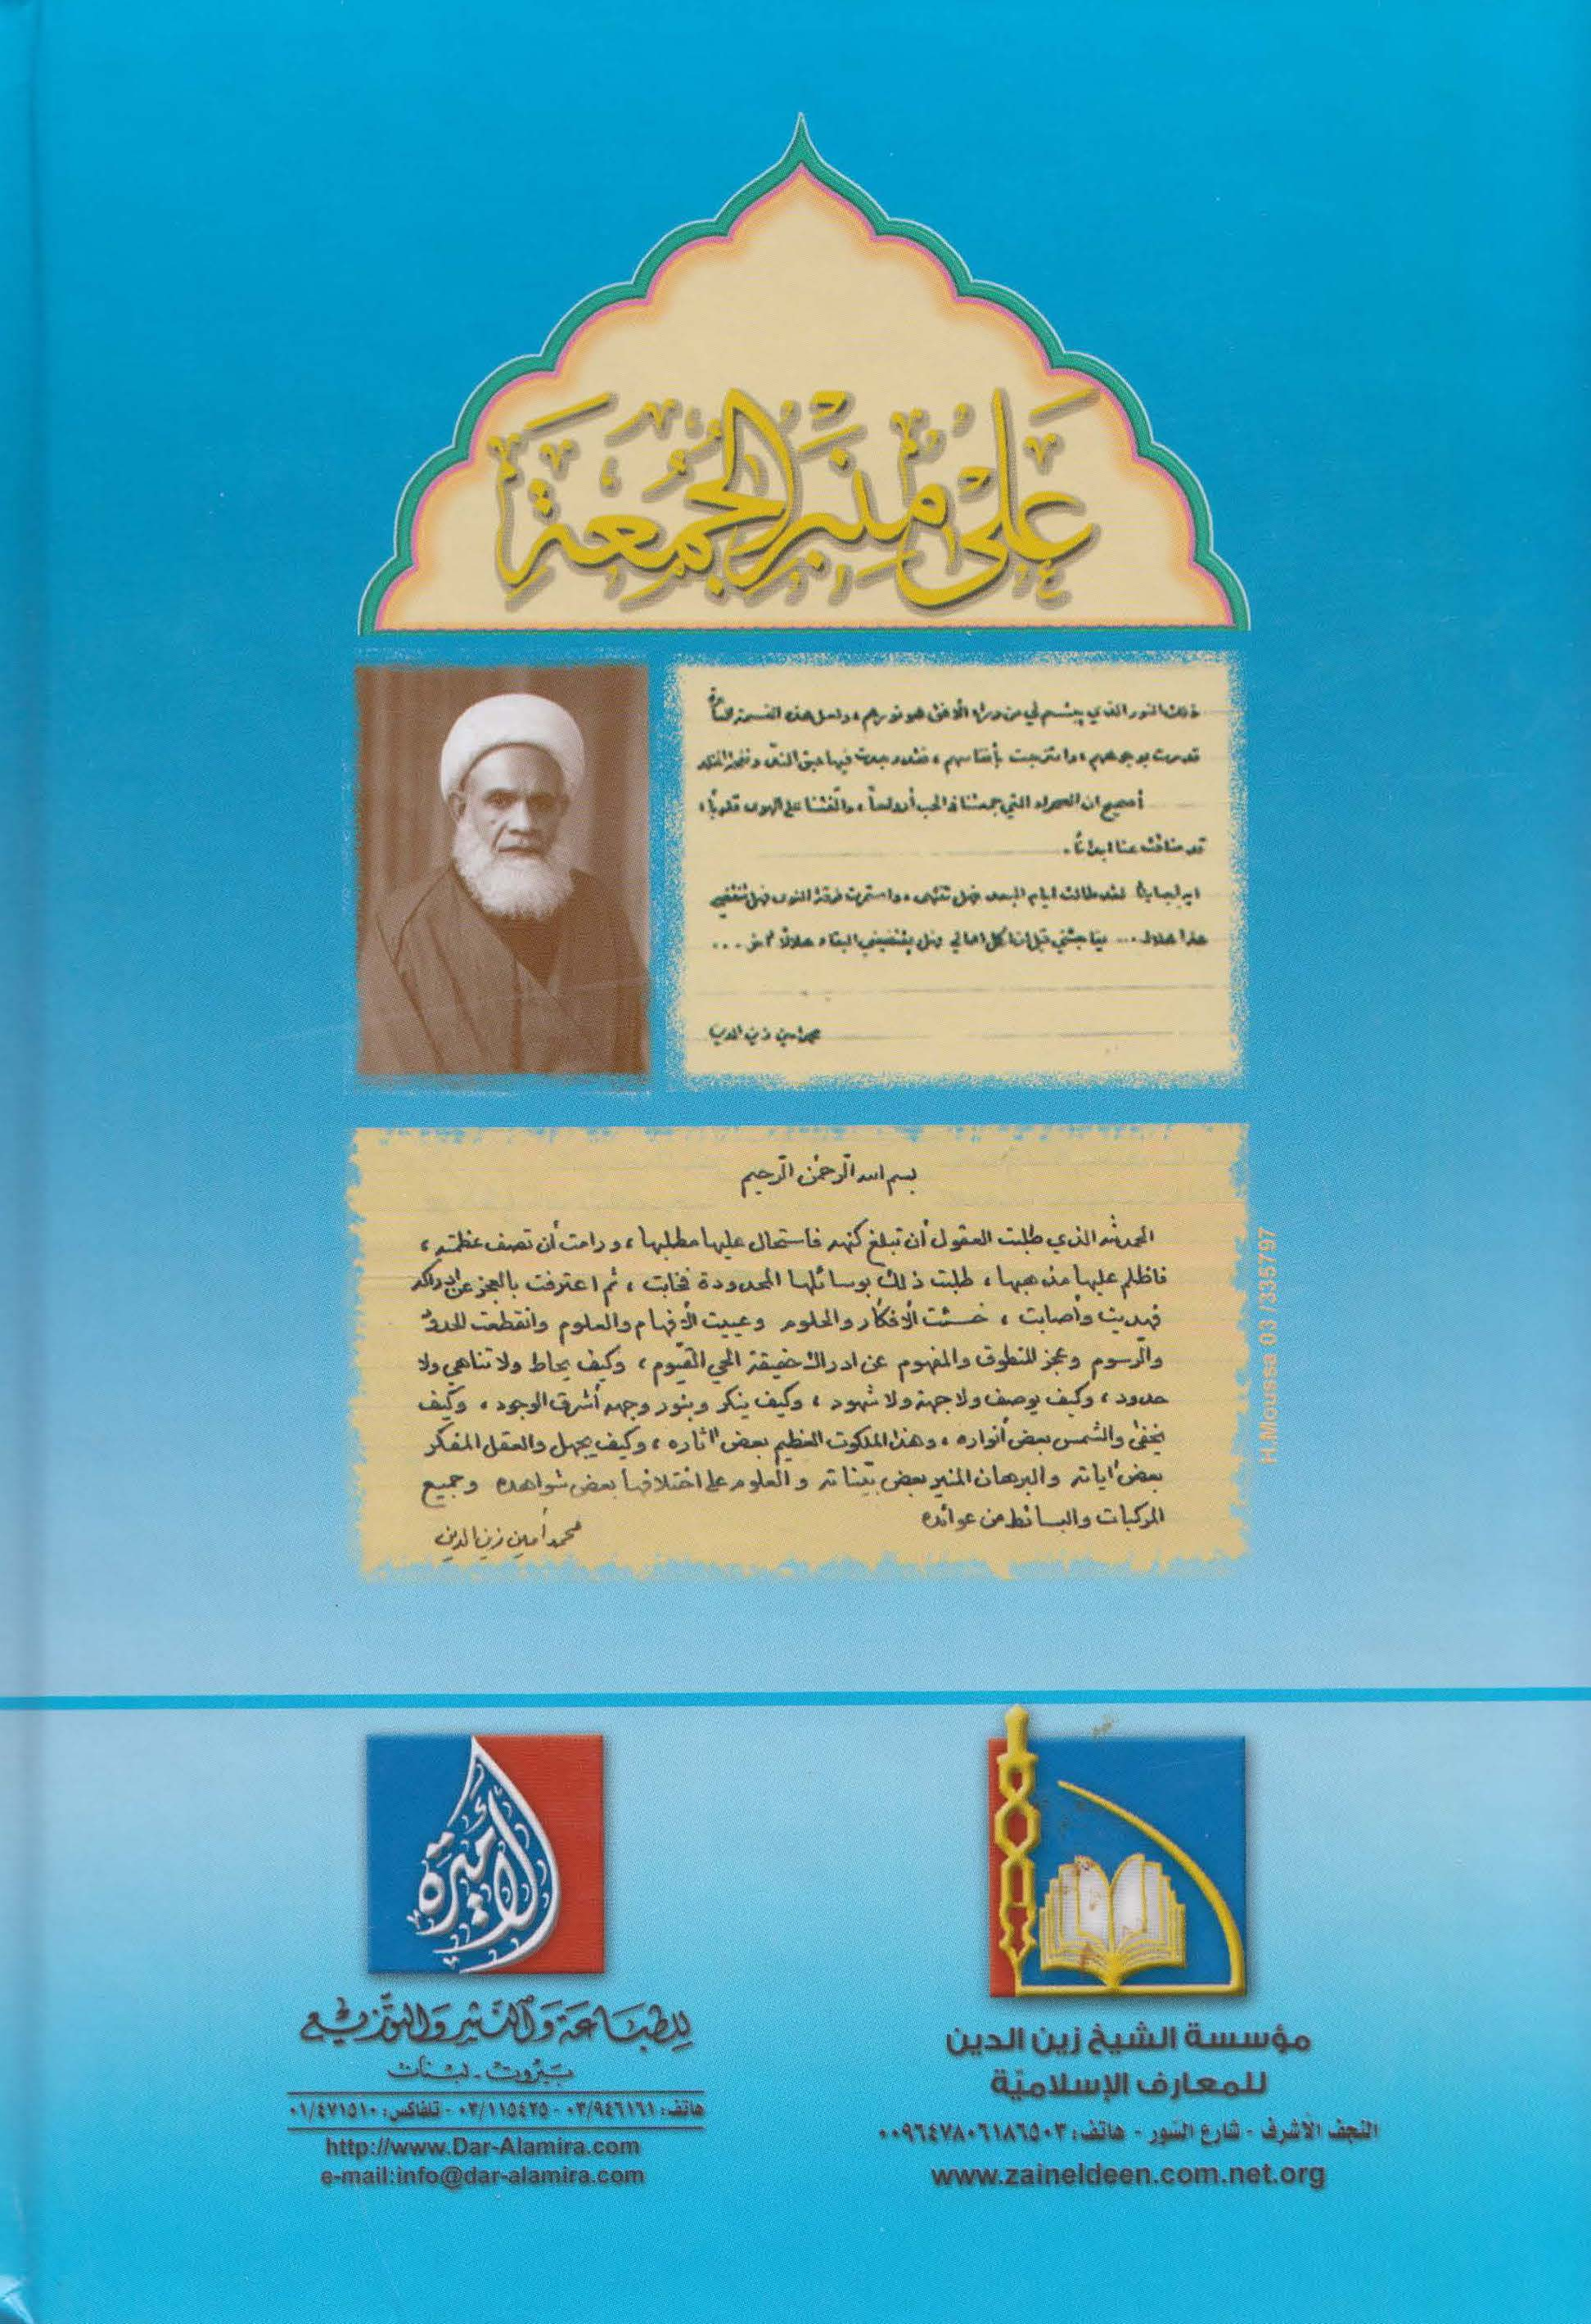 عَلى مِنبَرِ الجُمُعَةِ
ذلك النور الذي يبتسم لي من وراء الافق هو نورهم، ولعل هذه النسمة
قد مرت بوجوههم، وامتزجت بأنفاسهم، فقد وجدت فيها عبق الندّ ونفحة
أصحيح ان الصحراء التي جمعتنا في الحب أرواحاً، وألفتنا على الهوى قلوباً،
قد ضاقت عنا ابداناً.
لقد طالت ايام البعد فهل تنتهي، واستمرت فرقة النوى فهل تنقضي
هذا هلال... يفاجئني قبل انا كل اهالي وهل يقتضيني البقاء هلالاً آخر...
محمد امين زين الدين
بسم الله الرحمن الرحيم
الحمد لله الذي طلبت العقول أن تبلغ كنهه فاستحال عليها مطلبها، ورامت أن تصف عظمته،
فاظلم عليها مذهبها، طلبت ذلك بوسائلها المحدودة فخابت، ثم اعترفت بالعجز عن ادراكه
فهديت وأصابت، خسئت الأفكار والحلوم وعييت الأفهام والعلوم وانقطعت الحدود
والرسوم وعجز المنطوق والمفهوم عن ادراك حقيقة الحي القيّوم، وكيف يحاط ولا تناهي ولا
حدود، وكيف يوصف ولا جهة ولا شهود، وكيف ينكر وبنور وجهه أشرق الوجود، وكيف
يخفى والشمس بعض أنواره، وهذا الملكوت العظيم بعض آثاره، وكيف يجهل والعقل المفكر
بعض آياته والبرهان المنير بعض بيّناته والعلوم على اختلافها بعض شواهده وجميع
المركبات والبسائط من عوائده
محمد أمين زين الدين
H.Moussa 03 /335797
الأميرة
للطِبَاعَة وَالنَّشر وَالتَّوزيع
بَيْرُوت - لبْنَان
هاتف: ٠٣/٩٤٦١٦١ - ٠٣/١١٥٤٢٥ - تلفاكس: ٠١/٤٧١٥١٠
http://www.Dar-Alamira.com
e-mail:info@dar-alamira.com
مؤسسة الشيخ زين الدين
للمعارف الإسلاميّة
النجف الأشرف - شارع السّور - هاتف: ٠٠٩٦٤٧٨٠٦١٨٦٥٠٣
www.zaineldeen.com.net.org